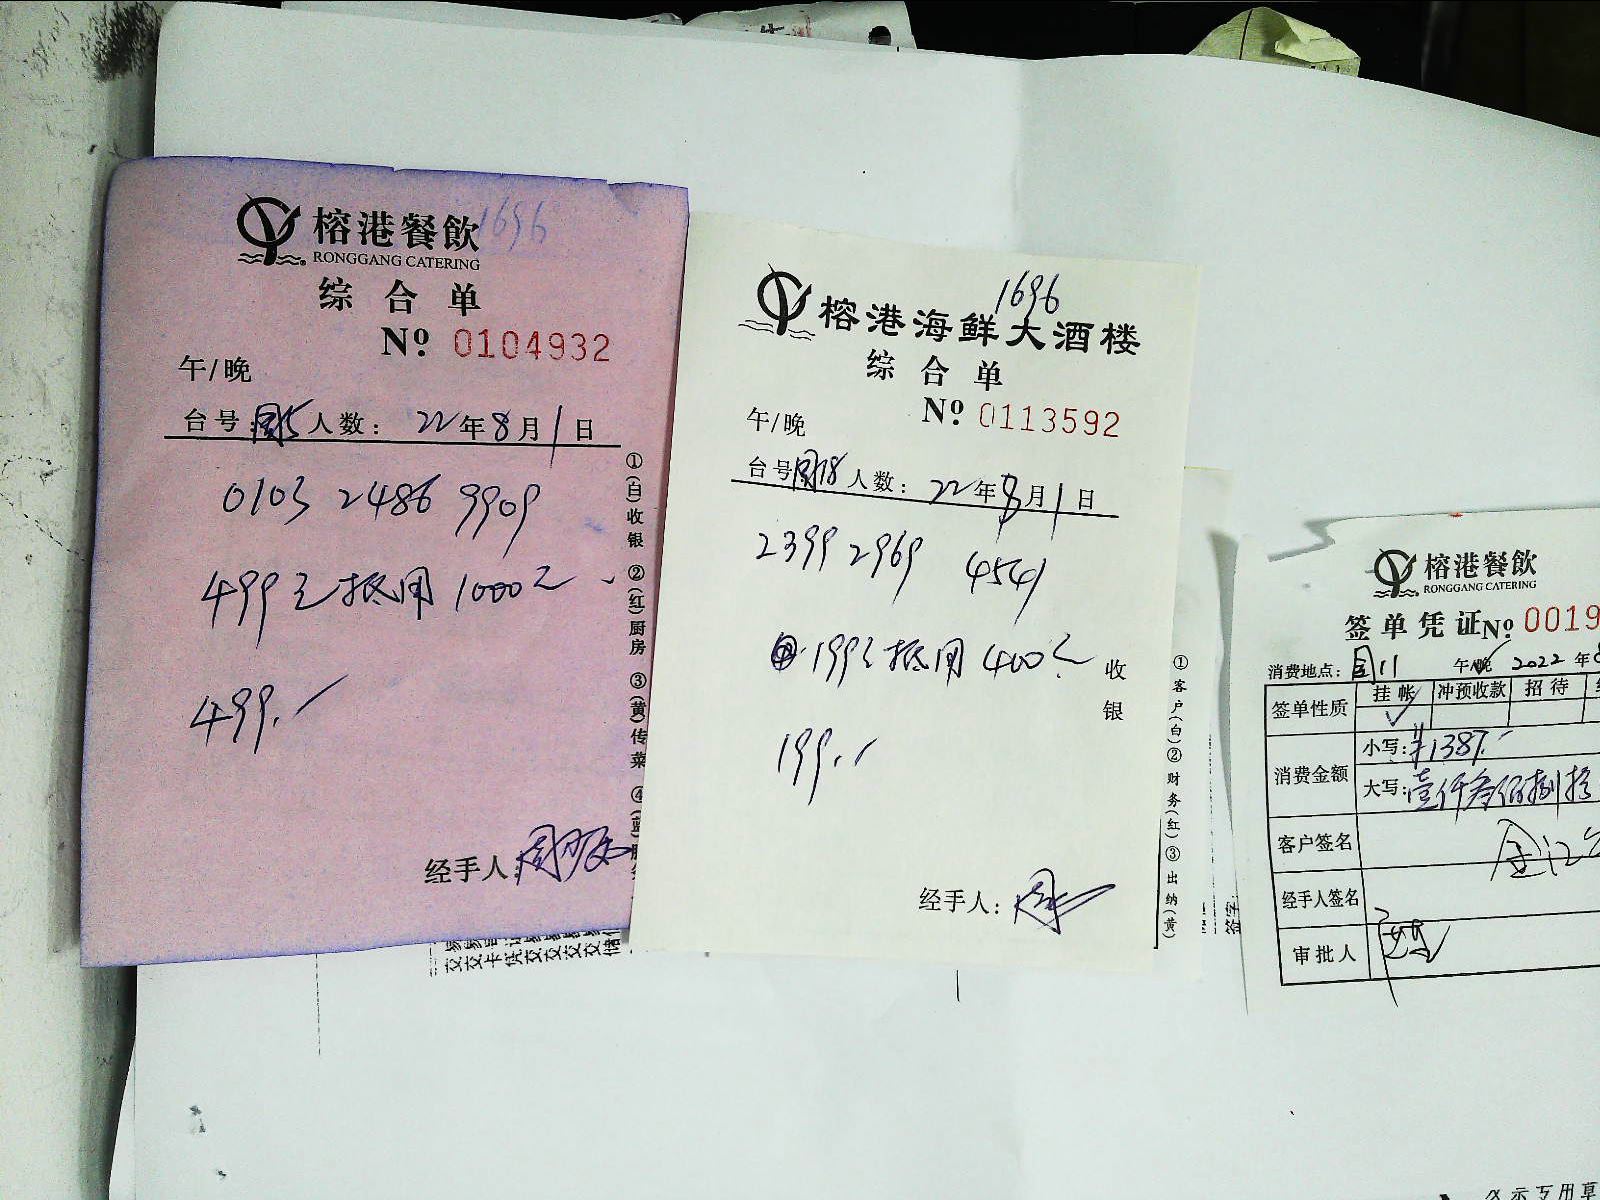 1696
榕港餐飲
RONGGANG CATERING
综合单
Nº 0104932
午/晚
台号: 周5 人数: 22年8月1日
0103 2486 9909
499元抵用1000元
499.
经手人:
①(白)收银 ②(红)厨房 ③(黄)传菜 ④(蓝)
1696
榕港海鲜大酒楼
综合单
Nº 0113592
午/晚
台号 周18 人数: 22年8月1日
2399 2969 4541
199元抵用400元
199.
收银
经手人: 周
①客户(白)②财务(红)③出纳(黄)
榕港餐飲
RONGGANG CATERING
签单凭证Nº 0019
消费地点: 11 午/晚 2022年8
签单性质 挂帐 冲预收款 招待
✓
消费金额 小写: ¥1387.-
大写: 壹仟叁佰捌拾
客户签名
经手人签名
审批人
签字